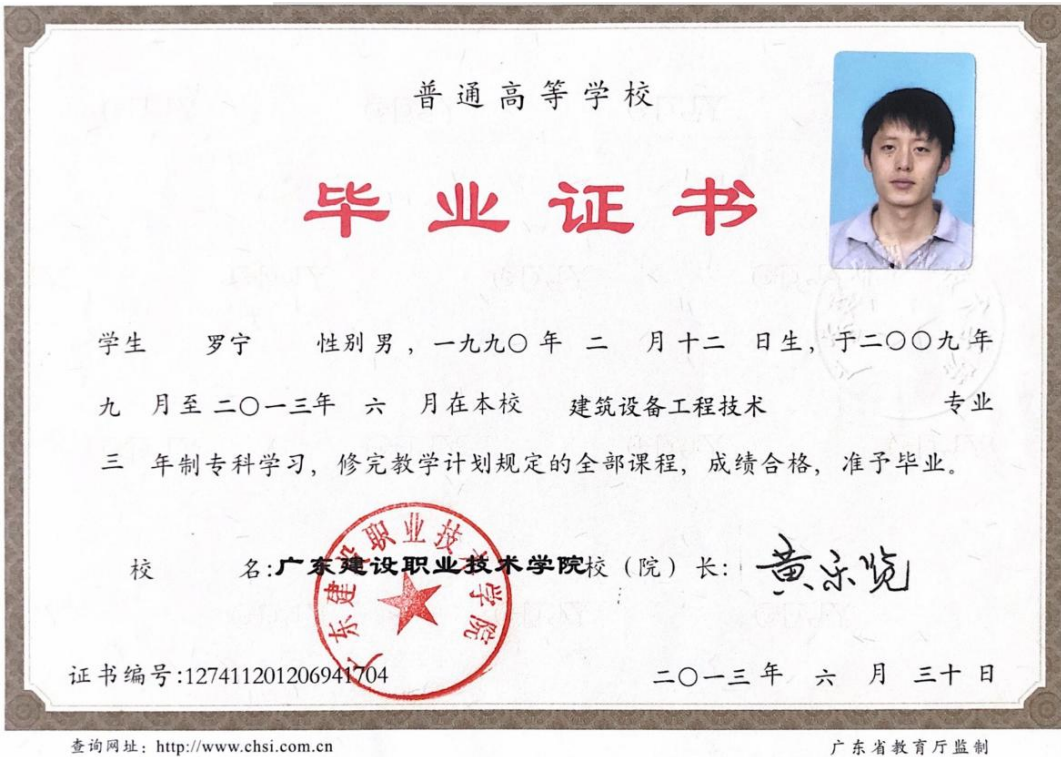 普通高等学校
毕业证书
学生 罗宁 性别 男，一九九〇年 二 月十二 日生，于二〇〇九年
九 月至二〇一三年 六 月在本校 建筑设备工程技术 专业
三 年制专科学习，修完教学计划规定的全部课程，成绩合格，准予毕业。
广东建设职业技术学院
校 名:广东建设职业技术学院校（院）长: 黄乐览
证书编号:127411201206941704
二〇一三年 六 月 三十日
查询网址：http://www.chsi.com.cn
广东省教育厅监制